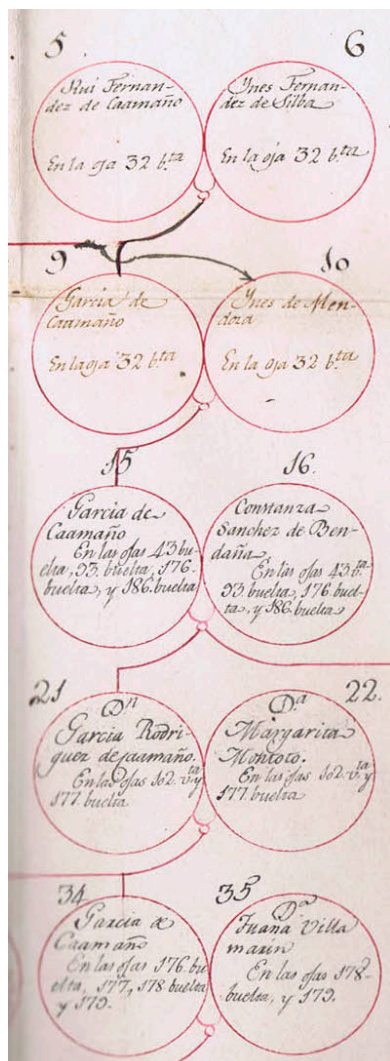 5
6
Rui Fernan-
dez de Caamaño
En la oja 32 b.ta
Ynes Fernan-
dez de Silba
En la oja 32 b.ta
9
10
Garcia de
Caamaño
En la oja 32 b.ta
Ynes de Men-
doza
En la oja 32 b.ta
15
16.
Garcia de
Caamaño
En las ojas 43 bu-
elta, 93. buelta, 176
buelta, y 186. buelta
Constanza
Sanchez de Ben-
daña,
En las ojas 43. b.ta
93 buelta, 176 buel-
ta, y 186 buelta
21
22.
Dn
Garcia Rodri-
guez de jaamaño.
En las ojas 162 v.ta y
177. buelta
D.a
Margarita
Montoto.
En las ojas 162 v.ta y
177 buelta
34
35
Garcia de
Caamaño
En las ojas 176. bu-
elta, 177, 178 buelta
y 179.
D.a
Juana Villa
marin
En las ojas 178
buelta, y 179.